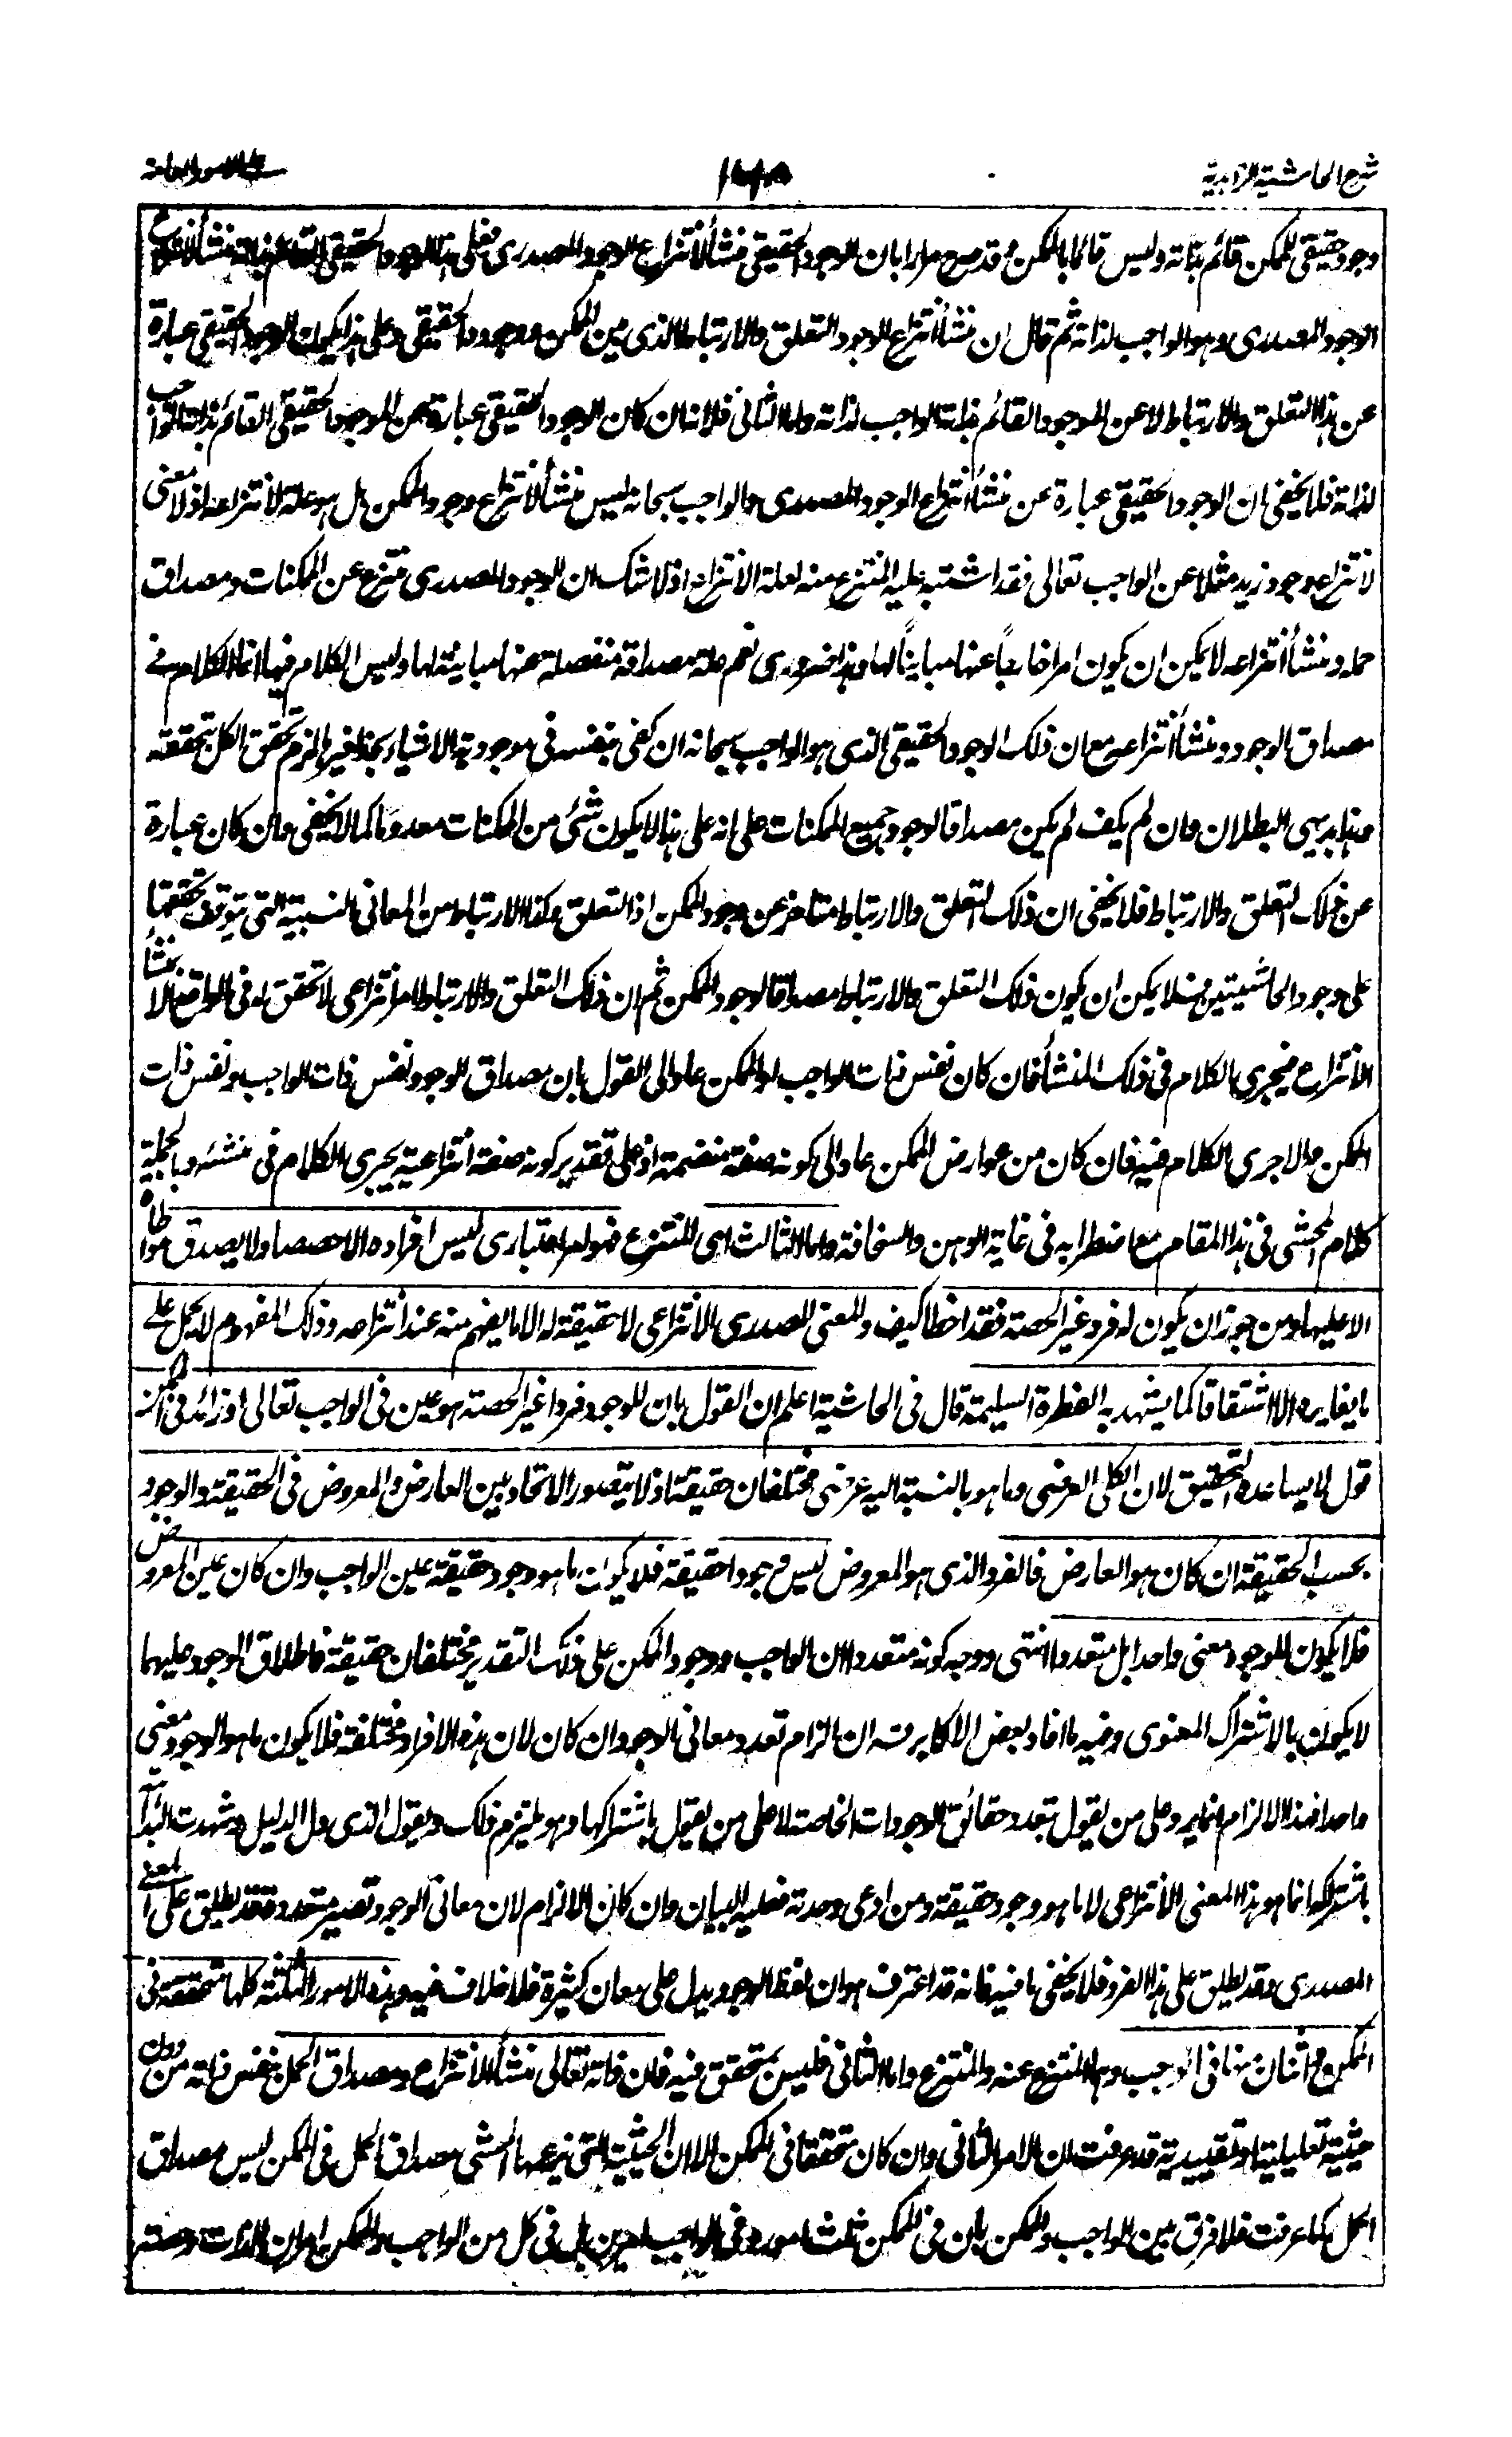 شرح الحاشية الزاهدية
وجود حقيقى للممكن قائم بذاته وليس قائما بالممكن وقد صرح مرارا بان الوجود الحقيقى منشأ لانتزاع الوجود المصدرى فعلى هذا الوجود الحقيقى القائم بذاته منشأ لانتزاع
الوجود المصدرى وهو الواجب لذاته ثم قال ان منشأ انتزاع الوجود التعلق والارتباط الذى بين الممكن ووجود الحقيقى وعلى هذا يكون الوجود الحقيقى عبارة
عن هذا التعلق والارتباط لا عن الموجود القائم بذاته الواجب لذاته واما الثانى فلانه ان كان الوجود الحقيقى عبارة عن الوجود الحقيقى القائم بذاته الواجب
لذاته فلا يخفى ان الوجود الحقيقى عبارة عن منشأ انتزاع الوجود المصدرى والواجب سبحانه ليس منشأ لانتزاع وجود الممكن بل هو علة لانتزاعه اذ لا معنى
لانتزاع وجود زيد مثلا عن الواجب تعالى فقد اشتبه عليه المنتزع منه لعلة الانتزاع اذ لا شك ان الوجود المصدرى منتزع عن الممكنات ومصداق
حمله ومنشأ انتزاعه لا يمكن ان يكون امرا خارجا عنها مباينا لها وهذا ضرورى نعم علة مصداقه منفصلة عنها مباينة لها وليس الكلام فيها انما الكلام فى
مصداق الوجود ومنشأ انتزاعه مع ان ذلك الوجود الحقيقى الذى هو الواجب سبحانه ان كفى بنفسه فى موجودية الاشياء بحذافيرها لزم تحقق الكل بتحققه
وهذا بديهى البطلان وان لم يكف لم يكن مصداقا لوجود جميع الممكنات على انه على هذا لا يكون شئ من الممكنات معدوما كما لا يخفى وان كان عبارة
عن ذلك التعلق والارتباط فلا يخفى ان ذلك التعلق والارتباط متأخر عن وجود الممكن اذ التعلق وكذا الارتباط من المعانى النسبية التى يتوقف تحققها
على وجود الحاشيتين فلا يمكن ان يكون ذلك التعلق والارتباط مصداقا لوجود الممكن ثم ان ذلك التعلق والارتباط امر انتزاعى لا تحقق له فى الواقع الا بمنشأ
الانتزاع فيجرى الكلام فى ذلك المنشأ فان كان نفس ذات الواجب او الممكن عاد الى القول بان مصداق الوجود نفس ذات الواجب ونفس ذات
الممكن والا جرى الكلام فيه فان كان من عوارض الممكن عاد الى كونه صفة منضمة اذ على تقدير كونه صفة انتزاعية يجرى الكلام فى منشئه وبالجملة
كلام المحشى فى هذا المقام مع اضطرابه فى غاية الوهن والسخافة واما الثالث اى المنتزع فهو امر اعتبارى ليس افراده الا حصصا ولا يصدق مواطاة
الا عليها ومن جوز ان يكون له فرد غير الحصة فقد اخطا كيف والمعنى المصدرى الانتزاعى لا حقيقة له الا ما يفهم منه عند انتزاعه وذلك المفهوم لا يحمل على
ما يغايره الا اشتقاقا كما يشهد به الفطرة السليمة قال فى الحاشية اعلم ان القول بان للوجود فردا غير الحصة هو عين فى الواجب تعالى وزائد فى الممكن
قول لا يساعده التحقيق لان الكلى العرضى وما هو بالنسبة اليه عرضى مختلفان حقيقة اذ لا يتصور الاتحاد بين العارض والمعروض فى الحقيقة والوجود
بحسب الحقيقة ان كان هو العارض فالفرد الذى هو المعروض ليس وجودا حقيقة فلا يكون ما هو وجود حقيقة عين الواجب وان كان عين المعروض
فلا يكون للوجود معنى واحدا بل متعددا انتهى ووجه كونه متعددا ان الواجب ووجود الممكن على ذلك التقدير مختلفان حقيقة فاطلاق الوجود عليهما
لا يكون بالاشتراك المعنوى وفيه ما افاد بعض الاكابر قه ان الزام تعدد معانى الوجود ان كان لان هذه الافراد مختلفة فلا يكون ما هو الوجود معنى
واحدا فهذا الالزام انما يرد على من يقول بتعدد حقائق الوجودات الخاصة لا على من يقول باشتراكها وهو يلتزم ذلك ويقول الذى دل الدليل وشهدت البداهة
باشتراكه انما هو هذا المعنى الانتزاعى لا ما هو وجود حقيقة ومن ادعى وحدته فعليه البيان وان كان الالزام لان معانى الوجود تصير متعددة فقد يطلق على المعنى
المصدرى وقد يطلق على هذا الفرد فلا يخفى ما فيه فانه قد اعترف هو ان لفظ الوجود يدل على معان كثيرة فلا خلاف فيه وهذه الامور الثلثة كلها متحققة فى
الممكن واثنان منها فى الواجب وهما المنتزع عنه والمنتزع واما الثانى فليس بمتحقق فيه فان ذاته تعالى منشأ الانتزاع ومصداق الحمل بنفس ذاته من دون
حيثية تعليلية او تقييدية قد عرفت ان الامر الثانى وان كان متحققا فى الممكن الا ان الحيثية التى زعمها المحشى مصداق الحمل فى الممكن ليس مصداق
الحمل كما عرفت فلا فرق بين الواجب والممكن بان فى الممكن ثلث امور وفى الواجب امرين بل فى كل من الواجب والممكن امران الذات وحصة